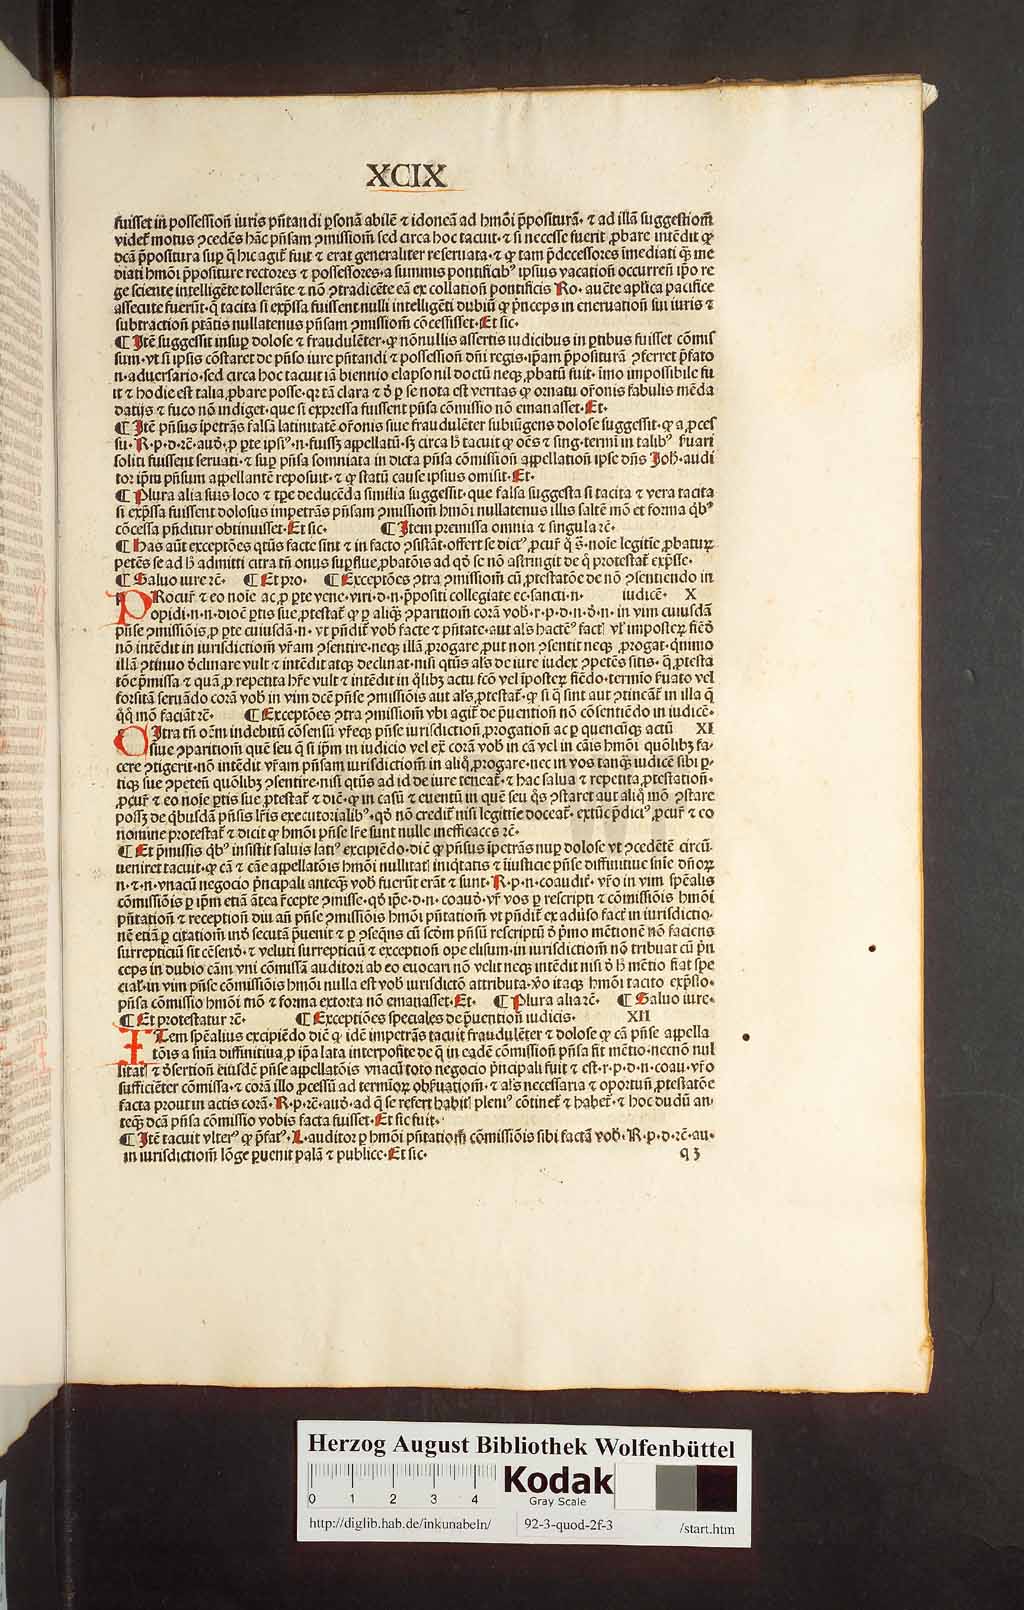 XCIX
fuisset in possessioñ iuris pñtandi ꝑsonā abilē ⁊ idoneā ad hmōi p̄positurā· ⁊ ad illā suggestiom̄
videlꝫ motus ꝯcedēs hāc pñsam ꝯmissiom̄ sed circa hoc tacuit· ⁊ si necesse fuerit ꝓbare intēdit ꝙ
dcā p̄positura suꝑ q̄ hic agit̄ fuit ⁊ erat generaliter reseruata· ⁊ ꝙ tam p̄decessores īmediati qꝫ̄ me
diati hmōi p̄positure rectores ⁊ possessores· a summis pontificibꝰ ipsius vacatioñ occurreñ ip̄o re
ge sciente intelligēte tollerāte ⁊ nō ꝯtradicēte eā ex collatioñ pontificis Ro· auc̄te aplica pacifice
assecute fuerūt· q̄ tacita si exp̄ssa fuissent nulli intelligēti dubiū ꝙ p̄nceps in eneruatioñ sui iuris ⁊
subtractioñ ptātis nullatenus pñsam ꝯmissiom̄ cōcessisset· Et sic·
¶ Itē suggessit insuꝑ dolose ⁊ fraudulēter· ꝙ nōnullis assertis iudicibus in ꝑtibus fuisset cōmis
sum· vt si ipsis cōstaret de pñso iure pñtandi ⁊ possessioñ dñi regis· ip̄am p̄positurā ꝯferret p̄fato
n· aduersario· sed circa hoc tacuit iā biennio elapso nil doctū neqꝫ ꝓbatū fuit· īmo impossibile fu
it ⁊ hodie est talia ꝓbare posse· qꝛ tā clara ⁊ d̄ ꝑ se nota est veritas ꝙ ornatu or̄onis fabulis mēda
datijs ⁊ fuco nō indiget· que si expressa fuissent pñsa cōmissio nō emanasset· Et·
¶ Itē pñsus ipetrās falsā latinitatē or̄onis siue fraudulēter subiūgens dolose suggessit· ꝙ a ꝓces
su· R· p· d· rē· aud̄· ꝓ pte ipsiꝰ· n· fuissꝫ appellatū· sꝫ circa h̄ tacuit ꝙ oēs ⁊ sing· termi in talibꝰ fuari
soliti fuissent seruati· ⁊ suꝑ pñsa somniata in dicta pñsa cōmissioñ appellatioñ ipse dñs Joh̄· audi
tor ip̄m pñsum appellantē reposuit· ⁊ ꝙ statū cause ipsius omisit· Et·
¶ Plura alia suis loco ⁊ tp̄e deducēda similia suggessit· que falsa suggesta si tacita ⁊ vera tacita
si exp̄ssa fuissent dolosus impetrās pñsam ꝯmissiom̄ hmōi nullatenus illis saltē mō et forma q̄bꝰ
cōcessa pñditur obtinuisset· Et sic· ¶ Item premissa omnia ⁊ singula rē·
¶ Has aūt exceptōes qtūs facte sint ⁊ in facto ꝯsistāt· offert se dictꝰ ꝓcur̄ q̄ s̄· noīe legitīe ꝓbaturꝫ
petēs se ad h̄ admitti citra tñ onus suꝑflue ꝓbatōis ad qd̄ se nō astringit de q̄ protestat̄ exp̄sse·
¶ Saluo iure rē· ¶ Et pro· ¶ Exceptōes ꝯtra ꝯmissiom̄ cū ꝓtestatōe de nō ꝯsentiendo in
PRocur̄ ⁊ eo noīe ac ꝓ pte vene· viri· d· n· p̄positi collegiate ec· sancti· n· iudicē· X
opidi· n· n· dioc̄ ꝑtis sue ꝓtestat̄ ꝙ ꝑ aliqꝫ ꝯparitiom̄ corā vob̄· r· p· d· n· d̄· n· in vim cuiusdā
pñse ꝯmissiōis ꝓ pte cuiusdā· n· vt pñdit̄ vob̄ facte ⁊ pñtate· aut al̄s hactēꝰ fact̄ vl̄ imposteꝝ fiēd̄
nō intēdit in iurisdictiom̄ vr̄am ꝯsentire· neqꝫ illā ꝓrogare ꝓut non ꝯsentit neqꝫ ꝓrogat· qnīmo
illā ꝯtinuo d̄clinare vult ⁊ intēdit atqꝫ declinat· nisi qtūs al̄s de iure iudex ꝯpetēs sitis· q̄ ꝓtesta
tōe p̄missa ⁊ quā ꝓ repetita hr̄e vult ⁊ intēdit in q̄libꝫ actu fcō vel īposteꝝ fiēdo· termio fuato vel
forsitā seruādo corā vob̄ in vim dcē pñse ꝯmissiōis aut al̄s ꝓtestat̄· ꝙ si q̄ sint aut ꝯtineāt̄ in illa q̄
q̄q̄ mō faciāt rē· ¶ Exceptōes ꝯtra ꝯmissiom̄ vbi agit̄ de p̄uentioñ nō cōsentiēdo in iudicē·
CItra tñ oēm indebitū cōsensū vr̄eqꝫ pñse iurisdictioñ ꝓrogatioñ ac ꝑ quencūqꝫ actū XI
siue ꝯparitiom̄ quē seu q̄ si ip̄m in iudicio vel ex̄ corā vob̄ in cā vel in cāis hmōi quōlibꝫ fa·
cere ꝯtigerit· nō intēdit vr̄am pñsam iurisdictiom̄ in aliq̄ ꝓrogare· nec in vos tanqꝫ iudicē sibi ꝑ·
tiqꝫ sue ꝯpeteñ quōlibꝫ ꝯsentire· nisi qtūs ad id de iure teneat̄· ⁊ hac salua ⁊ repetita ꝓtestatioñ·
ꝓcur̄ ⁊ eo noīe ꝑtis sue ꝓtestat̄ ⁊ dic̄· ꝙ in casū ⁊ euentū in quē seu q̄s ꝯstaret aut aliq̄ mō ꝯstare
possꝫ de q̄busdā pñsis lr̄is executorialibꝰ· qd̄ nō credit̄ nisi legitīe doceat̄· extūc p̄dictꝰ ꝓcur̄ ⁊ eo
nomine protestat̄ ⁊ dicit ꝙ hmōi pñse lr̄e sunt nulle inefficaces rē·
¶ Et p̄missis q̄bꝰ insistit saluis latiꝰ excipiēdo· dic̄ ꝙ pñsus ipetrās nuꝑ dolose vt ꝯcedētē circū·
ueniret tacuit· ꝙ cā ⁊ cāe appellatōis hmōi nullitat̄ iniqtatis ⁊ iiusticie pñse diffinitiue snīe dñoꝝ
n· ⁊ n· vnacū negocio p̄ncipali anteqꝫ̄ vob̄ fuerūt erāt ⁊ sunt· R· p· n· coaudit̄· vr̄o in vim spēalis
cōmissiōis ꝑ ip̄m etiā ātea r̄cepte ꝯmisse· qd̄ ipe· d· n· coaud̄· vr̄ vos ꝑ rescripti ⁊ cōmissiōis hmōi
pñtatioñ ⁊ receptioñ diu añ pñse ꝯmissiōis hmōi pñtatiom̄ vt pñdit̄ ex aduiso fact̄ in iurisdictio·
nē etiā ꝑ citatiom̄ ind̄ secutā p̄uenit ⁊ ꝑ ꝯseqñs cū scd̄m pñsū rescriptū d̄ p̄mo mētionē nō faciens
surrepticiū sit cēsend̄· ⁊ veluti surrepticiū ⁊ exceptioñ ope elisum· in iurisdictiom̄ nō tribuat cū p̄n
ceps in dubio cām vni cōmissā auditori ab eo euocari nō velit neqꝫ intēdit nisi d̄ h̄ mētio fiat spe
cial̄· in vim pñse cōmissiōis hmōi nulla est vob̄ iurisdictō attributa· vō itaqꝫ hmōi tacito exp̄sso·
pñsa cōmissio hmōi mō ⁊ forma extorta nō emanasset· Et· ¶ Plura alia rē· ¶ Saluo iure·
¶ Et protestatur rē· ¶ Exceptiōes speciales de p̄uentioñ iudicis· XII
ITem spēalius excipiēdo dic̄ ꝙ idē impetrās tacuit fraudulēter ⁊ dolose ꝙ cā pñse appella
tōis a snīa diffinitiua ꝓ ip̄a lata interposite de q̄ in eadē cōmissioñ pñsa fit mētio· necnō nul
litat̄ ⁊ d̄sertioñ eiusdē pñse appellatōis vnacū toto negocio p̄ncipali fuit ⁊ est· r· p· d· n· coau· vr̄o
sufficiēter cōmissa· ⁊ corā illo ꝓcessū ad termioꝝ obfuatiom̄· ⁊ al̄s necessaria ⁊ oportuñ ꝓtestatōe
facta prout in actis corā· R· p· rē· aud̄· ad q̄ se refert habit̄ pleniꝰ cōtinet̄ ⁊ habet̄· ⁊ hoc dudū an·
teqꝫ dcā pñsa cōmissio vobis facta fuisset· Et sic fuit·
¶ Itē tacuit vlterꝰ ꝙ p̄fatꝰ· L· auditor ꝑ hmōi pñtatiom̄ cōmissiōis sibi factā vob̄· R· p· d· rē· au·
in iurisdictiom̄ lōge p̄uenit palā ⁊ publice· Et sic·
q 3
Herzog August Bibliothek Wolfenbüttel
0 1 2 3 4
Kodak
Gray Scale
http://diglib.hab.de/inkunabeln/ 92-3-quod-2f-3 /start.htm